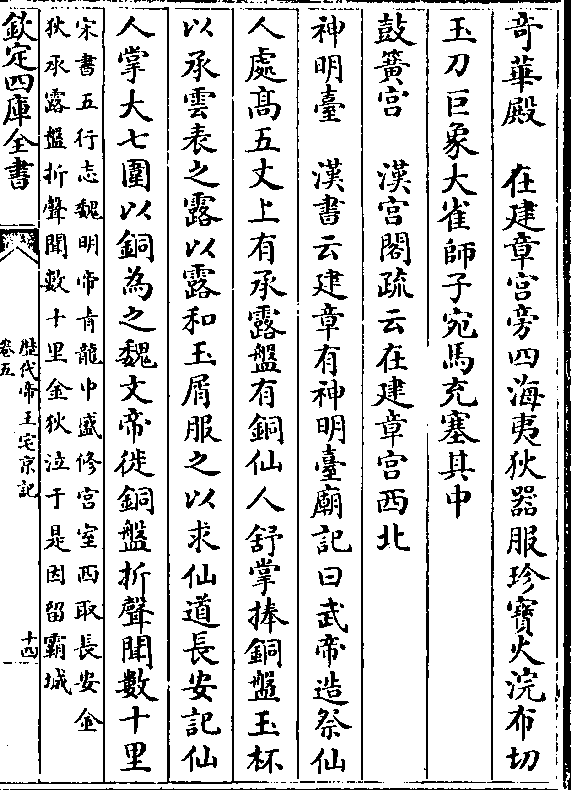 竒華殿　在建章宫旁四海夷狄器服珍寳火浣布切
玉刀巨象大雀師子宛馬充塞其中
鼓簧宫　漢宫閣疏云在建章宫西北
神明臺　漢書云建章有神明臺廟記曰武帝造祭仙
人處髙五丈上有承露盤有銅仙人舒掌捧銅盤玉杯
以承雲表之露以露和玉屑服之以求仙道長安記仙
人掌大七圍以銅為之魏文帝徙銅盤折聲聞數十里
宋書五行志魏明帝青龍中盛修宫室西取長安金
狄承露盤折聲聞數十里金狄泣于是因留霸城
欽定四庫全書
歴代帝王宅京記
卷五
十四